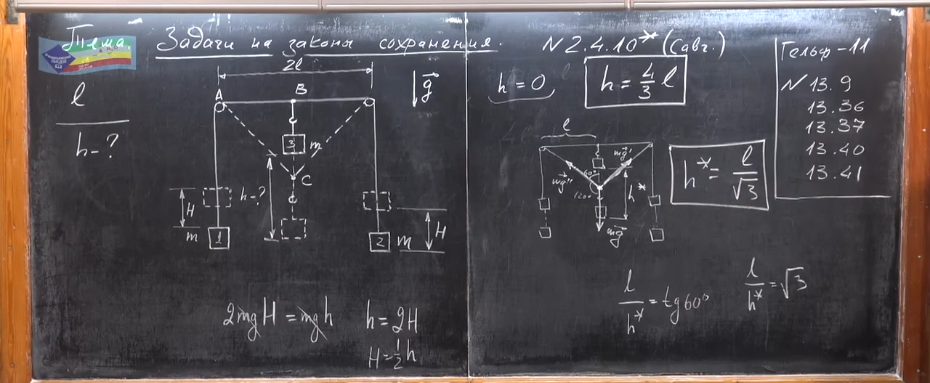 Тема. Задачи на законы сохранения.
N 2.4.10* (Савч.)
l
h - ?
2l
A
B
g
3
m
C
h - ?
H
m
1
2
m
H
2mgH = mgh
h = 2H
H = 1/2 h
h = 0
h = 4/3 l
l
mg'
mg''
60°
120°
h*
mg
h* = l/√3
l/h* = tg60°
l/h* = √3
Гельф-11
N 13.9
13.36
13.37
13.40
13.41